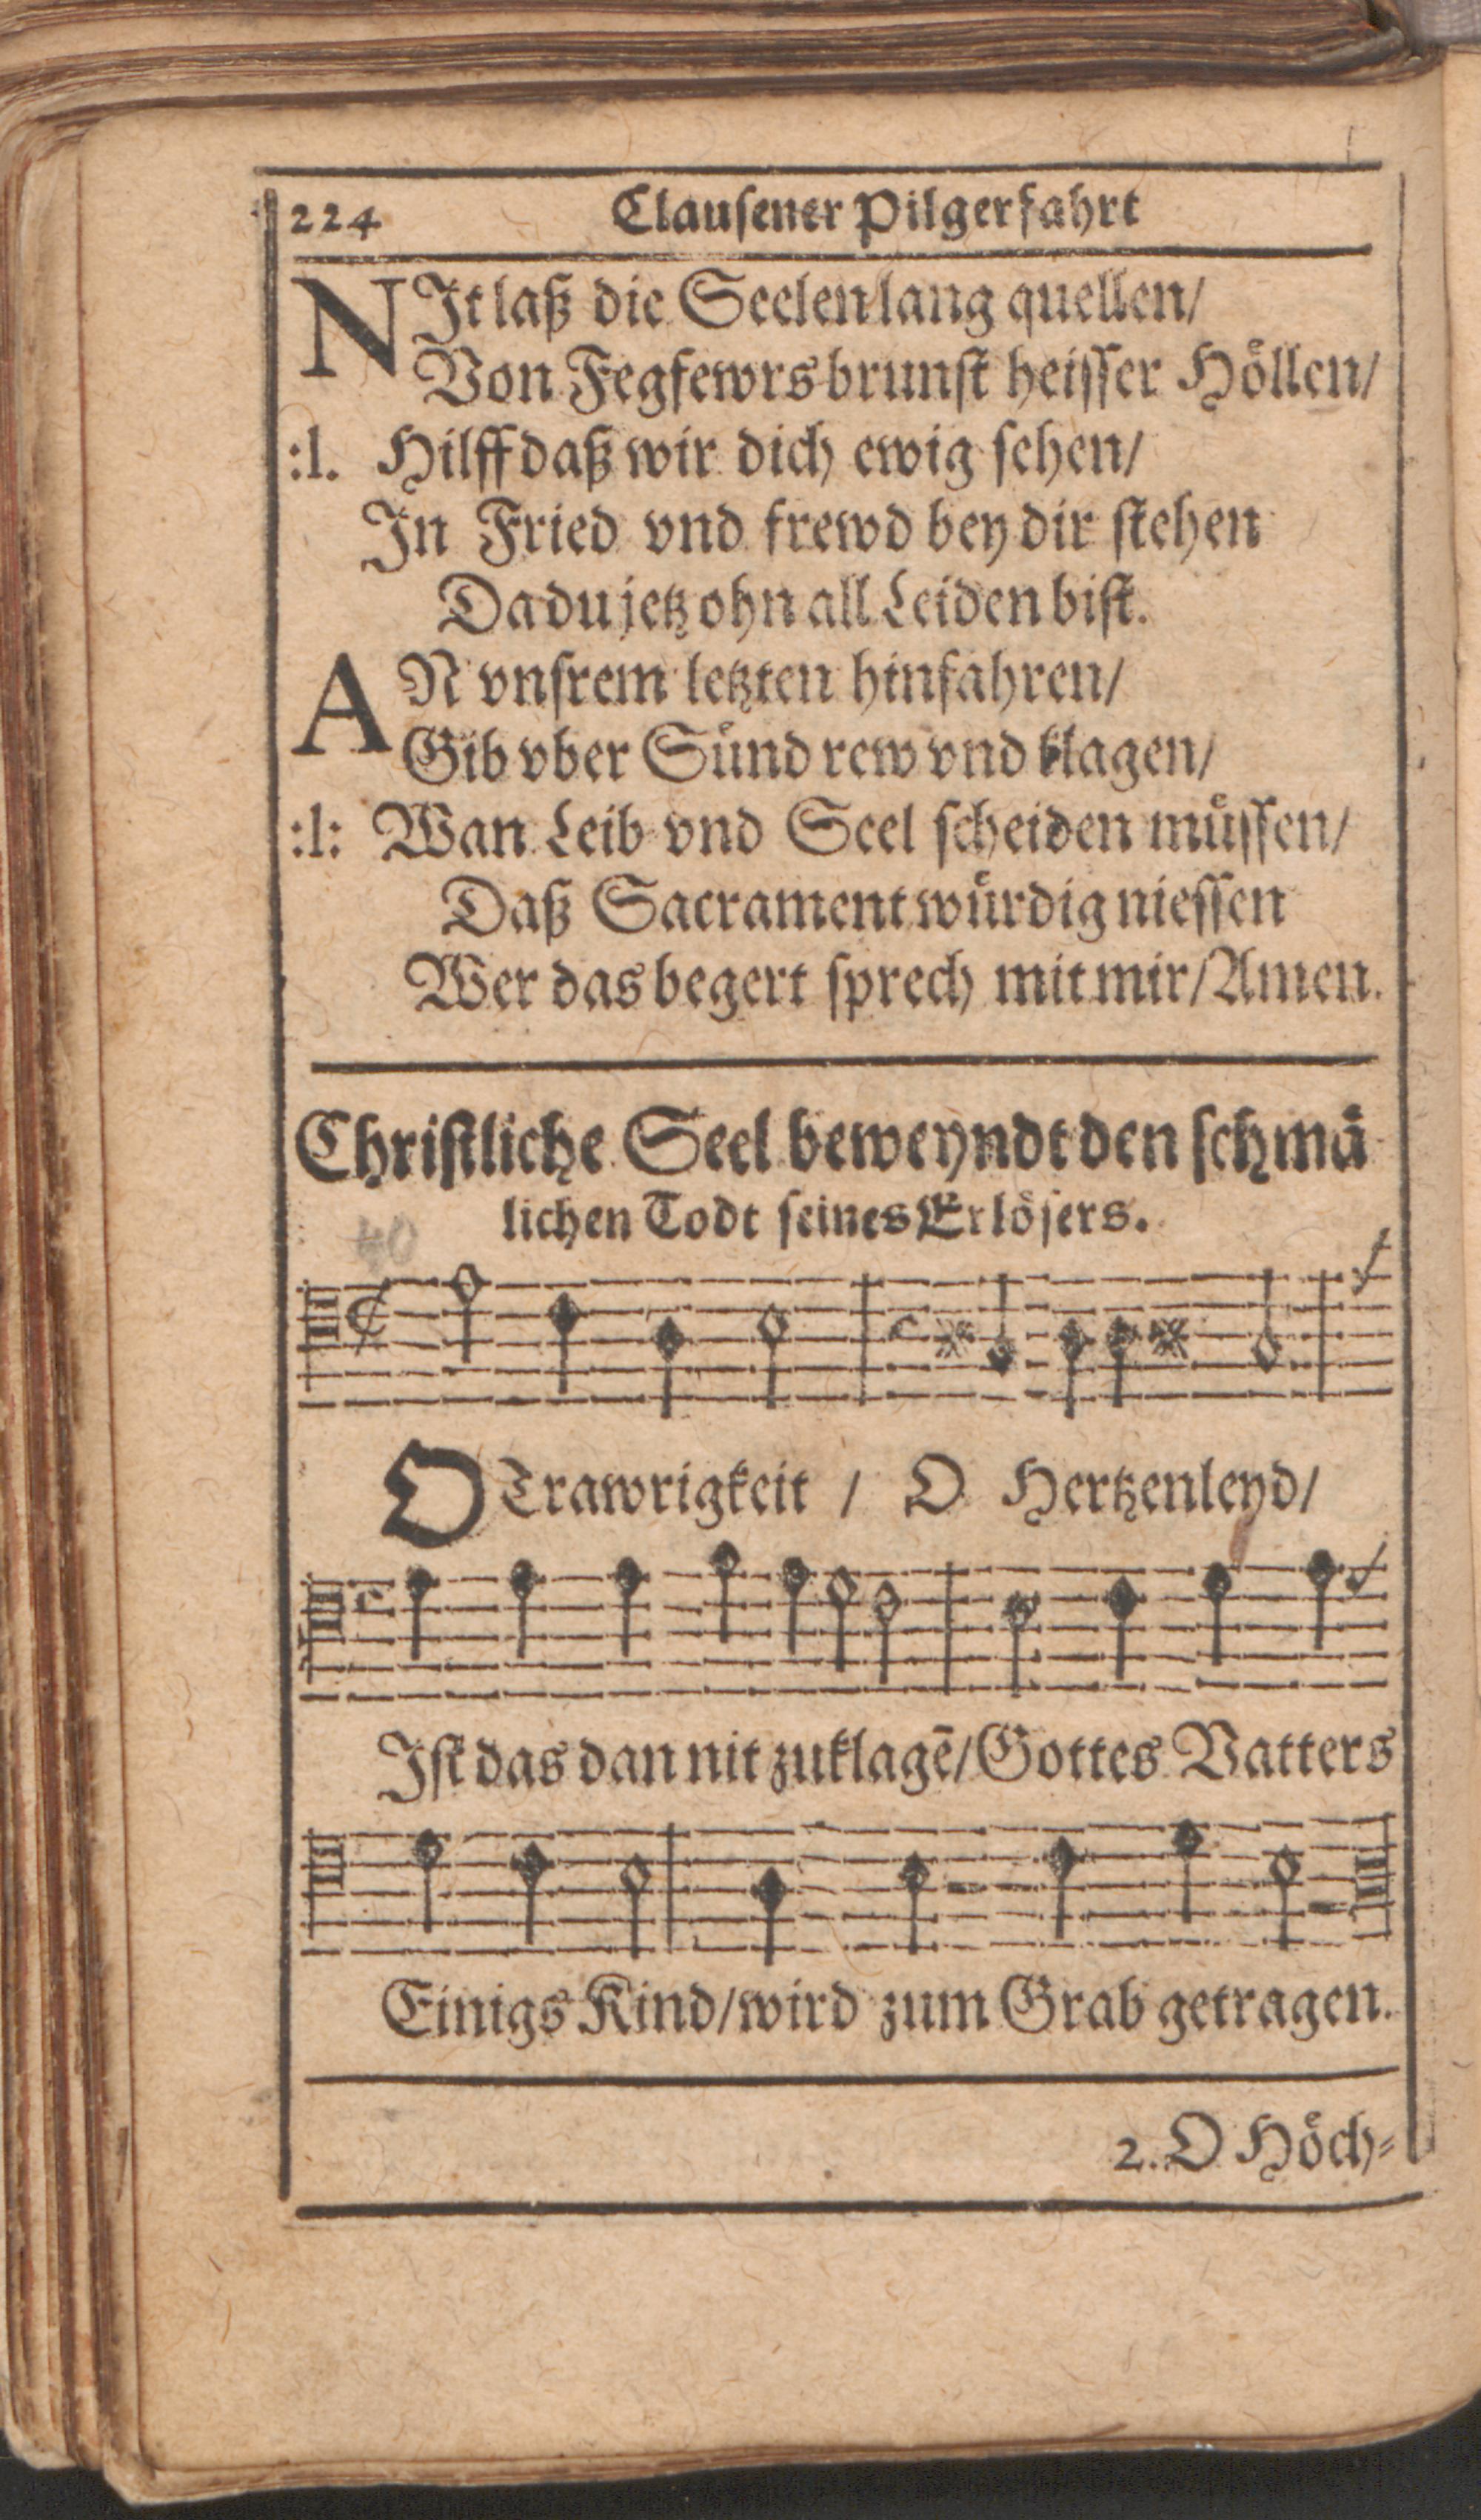 224 Clausener Pilgerfahrt
NJt laß die Seelen lang quellen/
Von Fegfewrs brunst heisser Hoͤllen/
:l. Hilff daß wir dich ewig sehen/
Jn Fried vnd frewd bey dir stehen
Da du jetz ohn all Leiden bist.
AN vnsrem letzten hinfahren/
Gib vber Suͤnd rew vnd klagen/
:l: Wan Leib vnd Seel scheiden muͤssen/
Daß Sacrament wuͤrdig niessen
Wer das begert sprech mit mir/Amen.
Christliche Seel beweyndt den schmaͤ
lichen Todt seines Erloͤsers.
40
O Trawrigkeit / O Hertzenleyd/
Jst das dan nit zuklagē/Gottes Vatters
Einigs Kind/wird zum Grab getragen.
2. O Hoͤch-